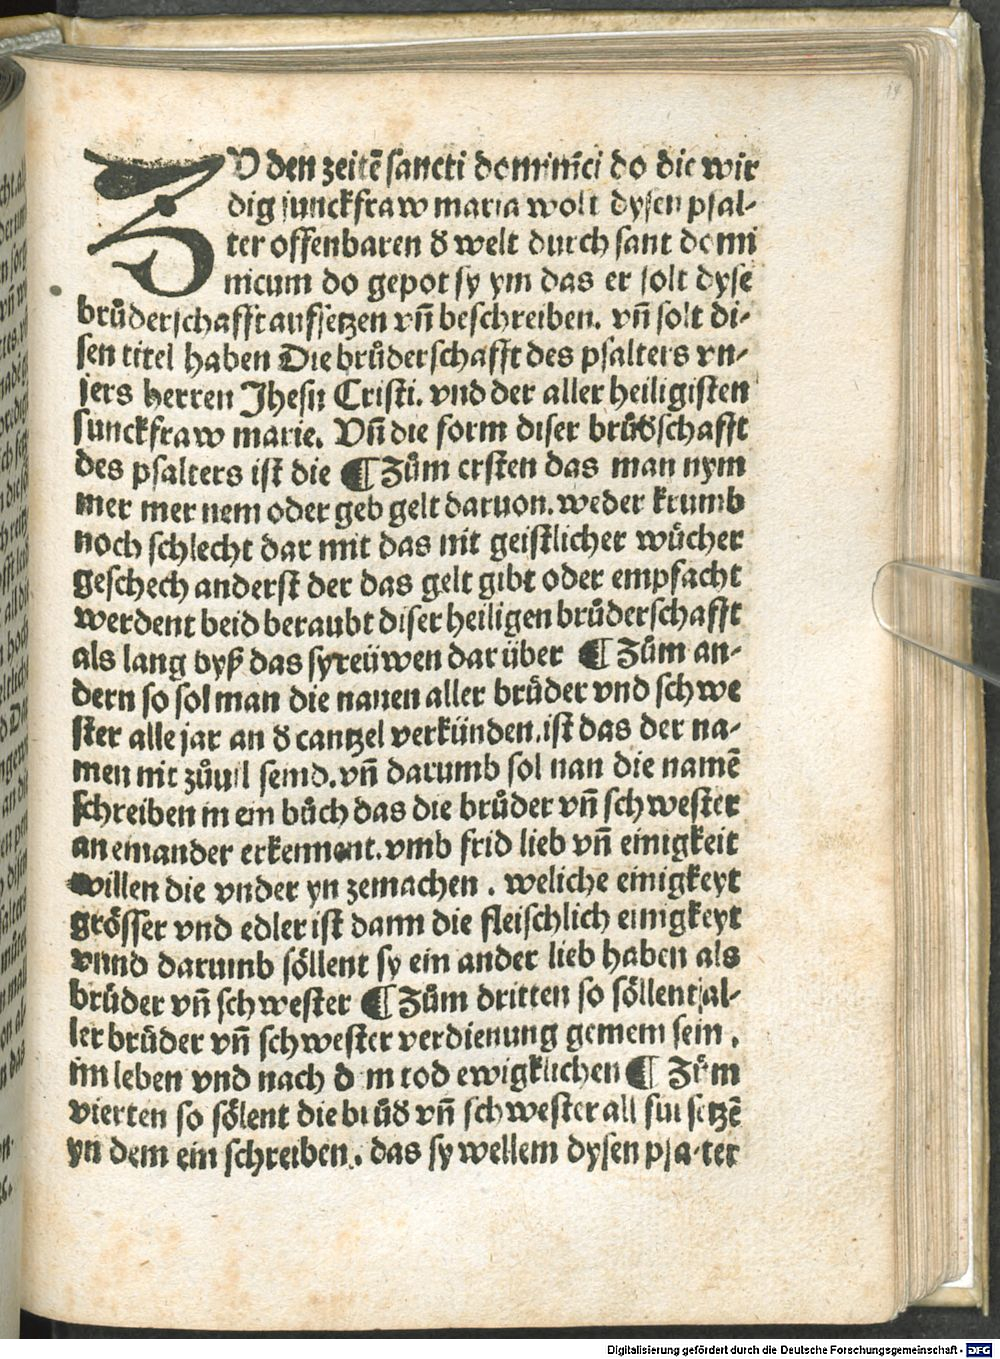 ZU den zeitē sancti dominici do die wir
dig junckfraw maria wolt dysen psal-
ter offenbaren d̕ welt durch sant domi
nicum do gepot sy ym das er solt dyse
brůderschafft auffsetzen vñ beschreiben. vñ solt di-
sen titel haben Die brůderschafft des psalters vn-
sers herren Jhesu Cristi. vnd der aller heiligisten
junckfraw marie. Vñ die form diser brůd̕schafft
des psalters ist die ¶ Zům ersten das man nym
mer mer nem oder geb gelt daruon. weder krumb
noch schlecht dar mit das nit geistlicher wůcher
geschech anderst der das gelt gibt oder empfacht
werdent beid beraubt diser heiligen brůderschafft
als lang byß das sy reüwen dar über ¶ Zům an-
dern so sol man die namen aller brůder vnd schwe
ster alle jar an d̕ cantzel verkünden. ist das der na-
men nit zůuil seind. vñ darumb sol man die namē
schreiben in ein bůch das die brůder vñ schwester
an einander erkennent. vmb frid lieb vñ einigkeit
willen die vnder yn zemachen. weliche einigkeyt
grösser vnd edler ist dann die fleischlich einigkeyt
vnnd darumb söllent sy ein ander lieb haben als
brůder vñ schwester ¶ Zům dritten so söllent al-
ler brůder vñ schwester verdienung gemein sein.
im leben vnd nach dem tod ewigklichen ¶ Zům
vierten so sölent die brůd̕ vñ schwester all für setzē
yn dem ein schreiben. das sy wellem dysen psalter
Digitalisierung gefördert durch die Deutsche Forschungsgemeinschaft - DFG